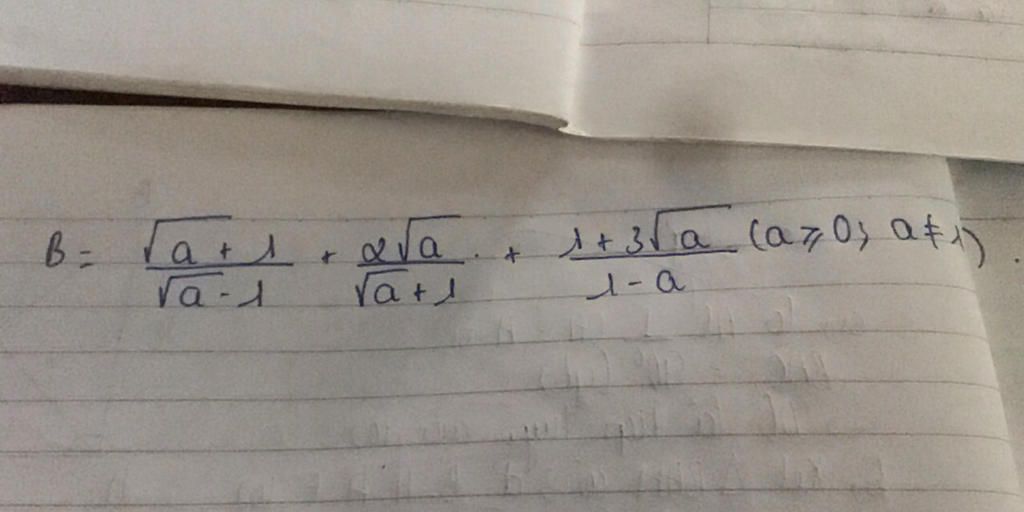 B = \frac{\sqrt{a}+1}{\sqrt{a}-1} + \frac{2\sqrt{a}}{\sqrt{a}+1} + \frac{1+3\sqrt{a}}{1-a} (a ⩾ 0; a ≠ 1).